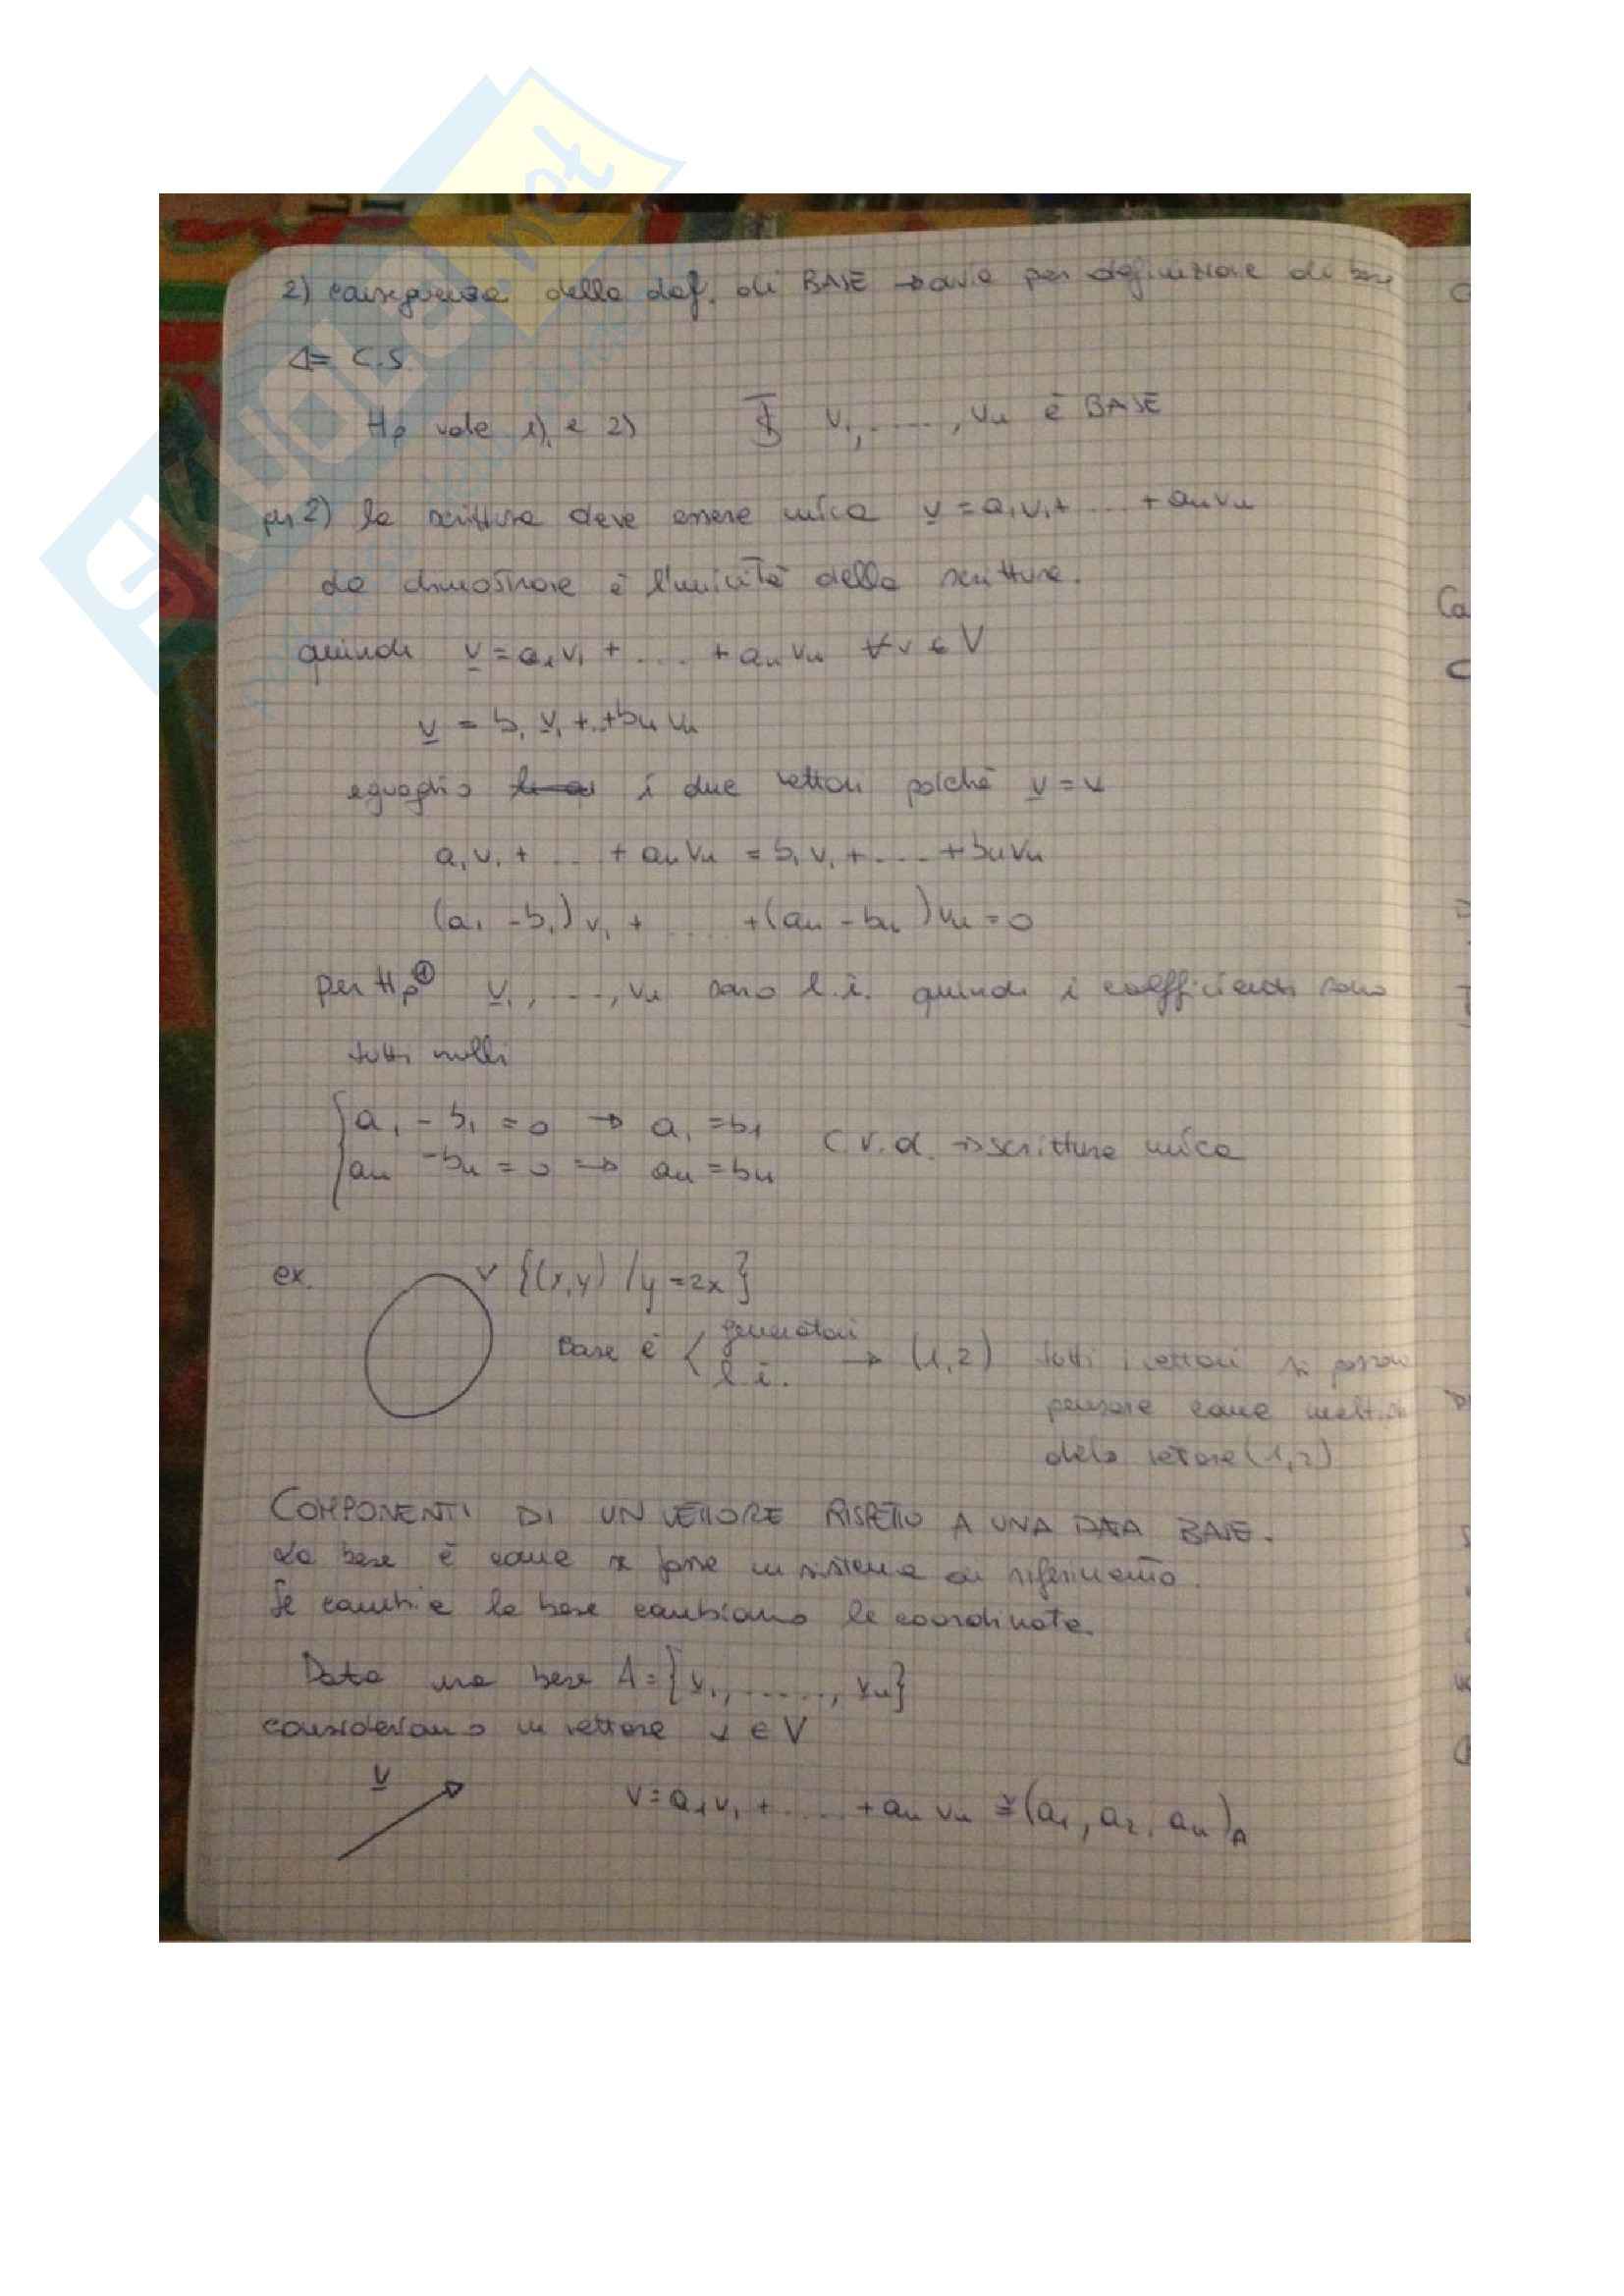 2) conseguenza della def. di BASE → ovvia per definizione di base
⇐ C.S.
Hp vale 1) e 2) v₁, ...., vₙ è BASE
per 2) la scrittura deve essere unica v = a₁v₁ + ... + aₙvₙ
da dimostrare è l'unicità della scrittura.
quindi v = a₁v₁ + .... + aₙvₙ ∀v ∈ V
v = b₁v₁ + .. + bₙvₙ
eguaglio i due vettori poichè v = v
a₁v₁ + ... + aₙvₙ = b₁v₁ + .... + bₙvₙ
(a₁ - b₁)v₁ + .... + (aₙ - bₙ)vₙ = 0
per Hp① v₁, ...., vₙ sono l.i. quindi i coefficienti sono
tutti nulli
{a₁ - b₁ = 0 → a₁ = b₁ C.V.d. → scrittura unica
{aₙ - bₙ = 0 → aₙ = bₙ
ex. V {(x,y) / y = 2x}
Base è < generatori
l.i. → (1,2) tutti i vettori si possono
pensare come
della vettore (1,2)
COMPONENTI DI UN VETTORE RISPETTO A UNA DATA BASE.
La base è come se fosse un sistema di riferimento.
Se cambia la base cambiano le coordinate.
Data una base A = {v₁, ......, vₙ}
consideriamo un vettore v ∈ V
v
v = a₁v₁ + .... + aₙvₙ ≡ (a₁, a₂, aₙ)A